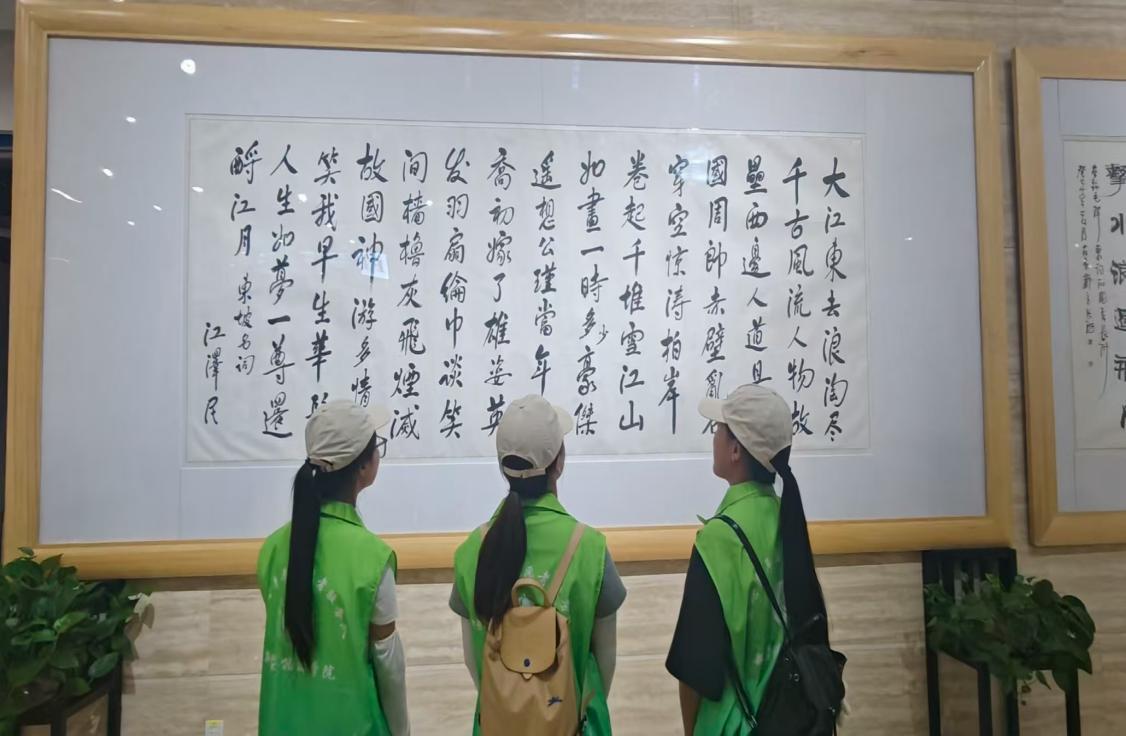 大江東去浪淘尽
千古風流人物故
壘西邊人道是
國周郎赤壁亂石
穿空惊涛拍岸
卷起千堆雪江山
如畫一時多少豪傑
遥想公瑾當年
喬初嫁了雄姿英
发羽扇綸巾谈笑
间檣櫓灰飛煙滅
故國神游多情
笑我早生華
人生如夢一尊還
酹江月 東坡词
江澤民
擊水浪遏飛
院